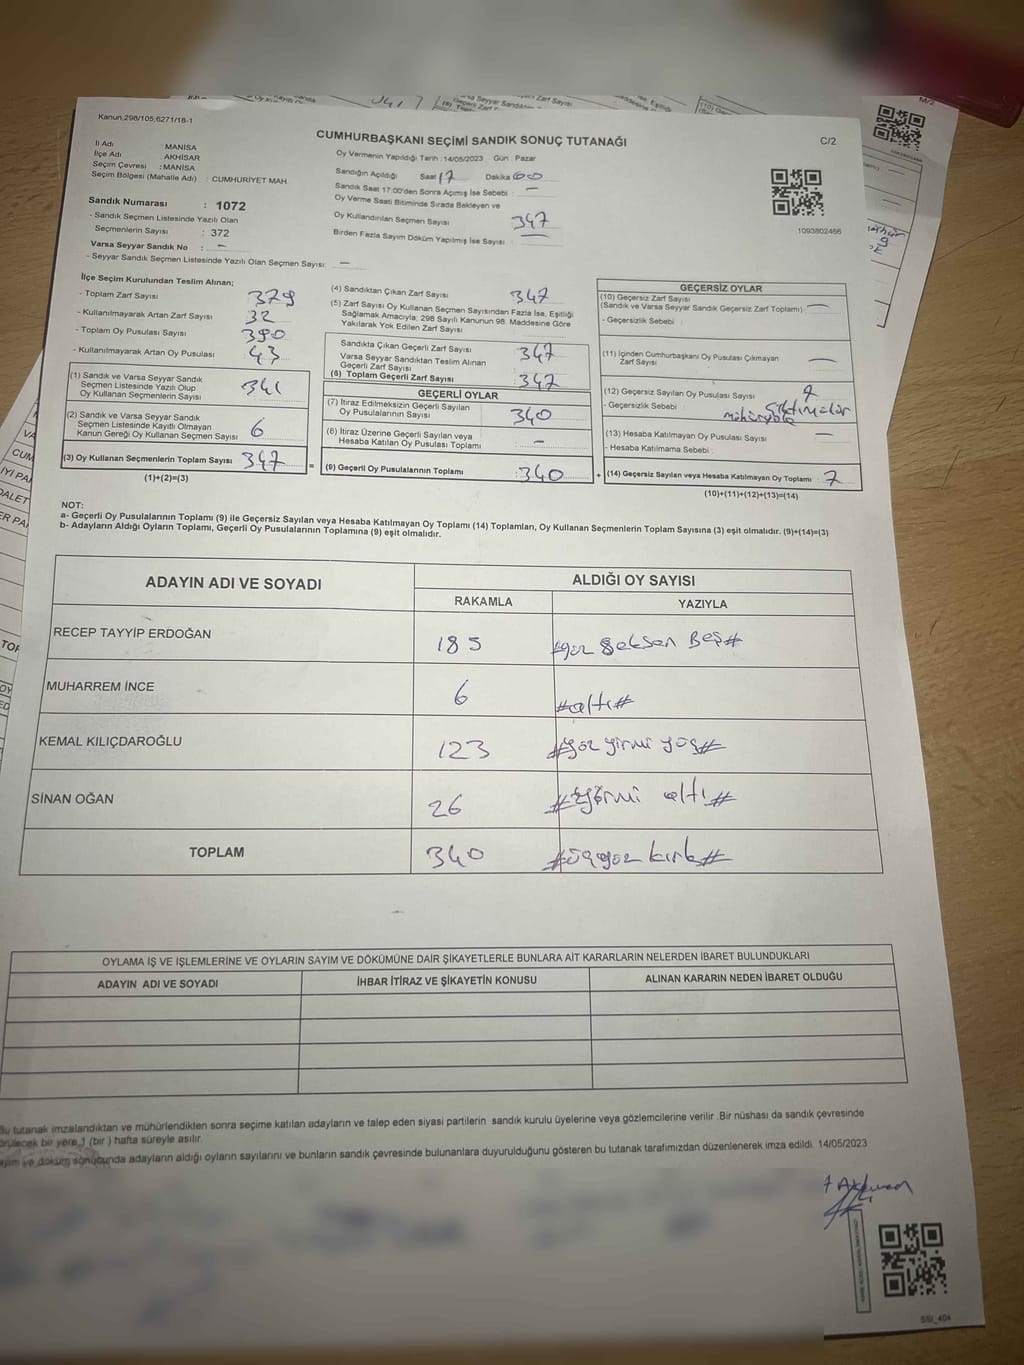 Kanun,298/105,6271/18-1
CUMHURBAŞKANI SEÇİMİ SANDIK SONUÇ TUTANAĞI
C/2
İl Adı : MANİSA
İlçe Adı : AKHİSAR
Seçim Çevresi : MANİSA
Seçim Bölgesi (Mahalle Adı) : CUMHURİYET MAH.
Oy Vermenin Yapıldığı Tarih : 14/05/2023 Gün : Pazar
Sandığın Açıldığı Saat 17 Dakika 00
Sandık Saat 17:00'den Sonra Açılmış İse Sebebi : —
Oy Verme Saati Bitiminde Sırada Bekleyen ve
Oy Kullandırılan Seçmen Sayısı 347
Birden Fazla Sayım Döküm Yapılmış İse Sayısı : —
1093802466
Sandık Numarası : 1072
- Sandık Seçmen Listesinde Yazılı Olan
Seçmenlerin Sayısı : 372
Varsa Seyyar Sandık No : —
- Seyyar Sandık Seçmen Listesinde Yazılı Olan Seçmen Sayısı: —
İlçe Seçim Kurulundan Teslim Alınan;
- Toplam Zarf Sayısı 379
- Kullanılmayarak Artan Zarf Sayısı 32
- Toplam Oy Pusulası Sayısı 390
- Kullanılmayarak Artan Oy Pusulası 43
(1) Sandık ve Varsa Seyyar Sandık
Seçmen Listesinde Yazılı Olup
Oy Kullanan Seçmenlerin Sayısı 341
(2) Sandık ve Varsa Seyyar Sandık
Seçmen Listesinde Kayıtlı Olmayan
Kanun Gereği Oy Kullanan Seçmen Sayısı 6
(3) Oy Kullanan Seçmenlerin Toplam Sayısı 347
(1)+(2)=(3)
(4) Sandıktan Çıkan Zarf Sayısı 347
(5) Zarf Sayısı Oy Kullanan Seçmen Sayısından Fazla İse, Eşitliği
Sağlamak Amacıyla; 298 Sayılı Kanunun 98. Maddesine Göre
Yakılarak Yok Edilen Zarf Sayısı
Sandıkta Çıkan Geçerli Zarf Sayısı 347
Varsa Seyyar Sandıktan Teslim Alınan
Geçerli Zarf Sayısı
(6) Toplam Geçerli Zarf Sayısı : 347
GEÇERLİ OYLAR
(7) İtiraz Edilmeksizin Geçerli Sayılan
Oy Pusulalarının Sayısı : 340
(8) İtiraz Üzerine Geçerli Sayılan veya
Hesaba Katılan Oy Pusulası Toplamı : —
= (9) Geçerli Oy Pusulalarının Toplamı : 340 +
GEÇERSİZ OYLAR
(10) Geçersiz Zarf Sayısı
(Sandık ve Varsa Seyyar Sandık Geçersiz Zarf Toplamı) : —
- Geçersizlik Sebebi :
(11) İçinden Cumhurbaşkanı Oy Pusulası Çıkmayan
Zarf Sayısı —
(12) Geçersiz Sayılan Oy Pusulası Sayısı 7
- Geçersizlik Sebebi
(13) Hesaba Katılmayan Oy Pusulası Sayısı —
- Hesaba Katılmama Sebebi :
(14) Geçersiz Sayılan veya Hesaba Katılmayan Oy Toplamı : 7
(10)+(11)+(12)+(13)=(14)
NOT:
a- Geçerli Oy Pusulalarının Toplamı (9) ile Geçersiz Sayılan veya Hesaba Katılmayan Oy Toplamı (14) Toplamları, Oy Kullanan Seçmenlerin Toplam Sayısına (3) eşit olmalıdır. (9)+(14)=(3)
b- Adayların Aldığı Oyların Toplamı, Geçerli Oy Pusulalarının Toplamına (9) eşit olmalıdır.
ADAYIN ADI VE SOYADI
ALDIĞI OY SAYISI
RAKAMLA YAZIYLA
RECEP TAYYİP ERDOĞAN 185 #yüz seksen Beş#
MUHARREM İNCE 6 #altı#
KEMAL KILIÇDAROĞLU 123 #yüz yirmi
SİNAN OĞAN 26 altı#
TOPLAM 340 #üçyüz kırk#
OYLAMA İŞ VE İŞLEMLERİNE VE OYLARIN SAYIM VE DÖKÜMÜNE DAİR ŞİKAYETLERLE BUNLARA AİT KARARLARIN NELERDEN İBARET BULUNDUKLARI
ADAYIN ADI VE SOYADI İHBAR İTİRAZ VE ŞİKAYETİN KONUSU ALINAN KARARIN NEDEN İBARET OLDUĞU
Bu tutanak imzalandıktan ve mühürlendikten sonra seçime katılan adayların ve talep eden siyasi partilerin sandık kurulu üyelerine veya gözlemcilerine verilir. Bir nüshası da sandık çevresinde
görülecek bir yere 1 (bir ) hafta süreyle asılır.
ve döküm sonucunda adayların aldığı oyların sayılarını ve bunların sandık çevresinde bulunanlara duyurulduğunu gösteren bu tutanak tarafımızdan düzenlenerek imza edildi. 14/05/2023
SSI_404